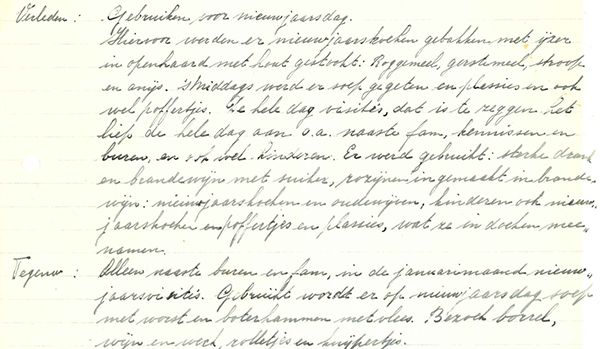 Verleden : Gebruiken, voor nieuwjaarsdag.
Hiervoor werden er nieuwjaarskoeken gebakken met ijzer
in openhaard met hout gestookt: Roggemeel, gerstemeel, stroop
en anijs. Smiddags werd er soep gegeten en plassies en ook
wel poffertjes. De hele dag visites, dat is te zeggen het
liep de hele dag aan o.a. naaste fam, kennissen en
buren, en ook wel kinderen. Er werd gebruikt: sterke drank
en brandewijn met suiker, rozijnen ingemaakt in brande-
wijn: nieuwjaarskoeken en oudewijven, kinderen ook nieuw-
jaarskoeken en poffertjes en plassies, wat ze in doeken mee-
namen.
Tegenw : Alleen naaste buren en fam, in de januarimaand nieuw-
jaarsvisites. Gebruikt wordt er op nieuwjaarsdag soep
met worst en boterhammen met vlees. Bezoek borrel,
wijn en verd, rolletjes en knijpertjes.